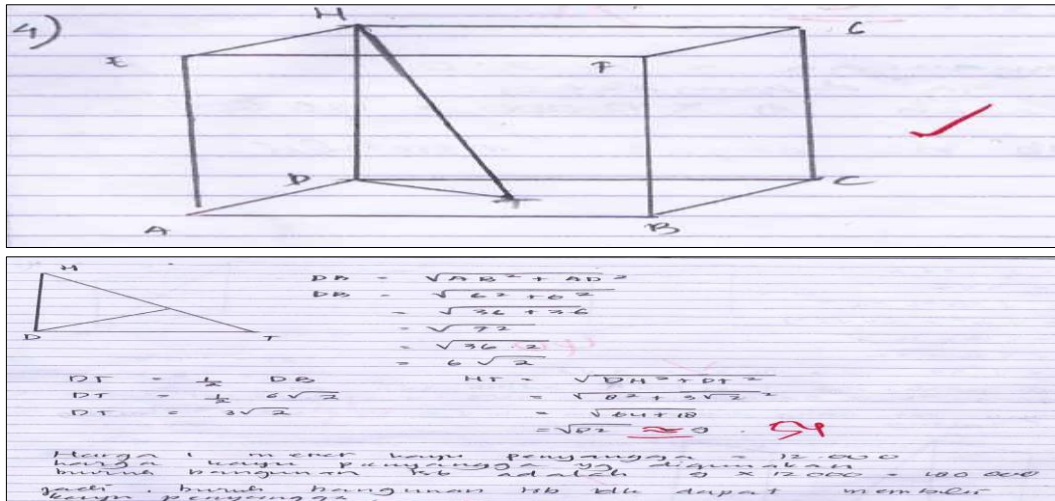 4)
H
G
E
F
D
C
T
A
B
H
D
T
DB = √AB² + AD²
DB = √6² + 6²
= √36 + 36
= √72
= √36 . 2
= 6√2
DT = ½ DB
DT = ½ 6√2
DT = 3√2
HT = √DH² + DT²
= √8² + 3√2²
= √64 + 18
= √82 ≈ 9 .
Harga 1 meter kayu penyangga = 12.000
harga kayu penyangga yg digunakan
buruh bangunan tsb adalah 9 x 12 000 = 108 000
jadi, buruh bangunan tsb tdk dapat membeli
kayu penyangga.